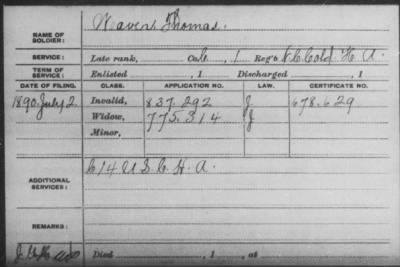 Waver Thomas.
NAME OF SOLDIER:
SERVICE: Late rank, Co. , 1 Reg't Cold H A.
TERM OF SERVICE: Enlisted , 1 Discharged , 1
DATE OF FILING. CLASS. APPLICATION NO. LAW. CERTIFICATE NO.
1890. July 2 Invalid, 837.292 J. 678.629
Widow, 775.314 J
Minor,
C 14 U S C H. A.
ADDITIONAL SERVICES:
REMARKS:
Died , 1 , at